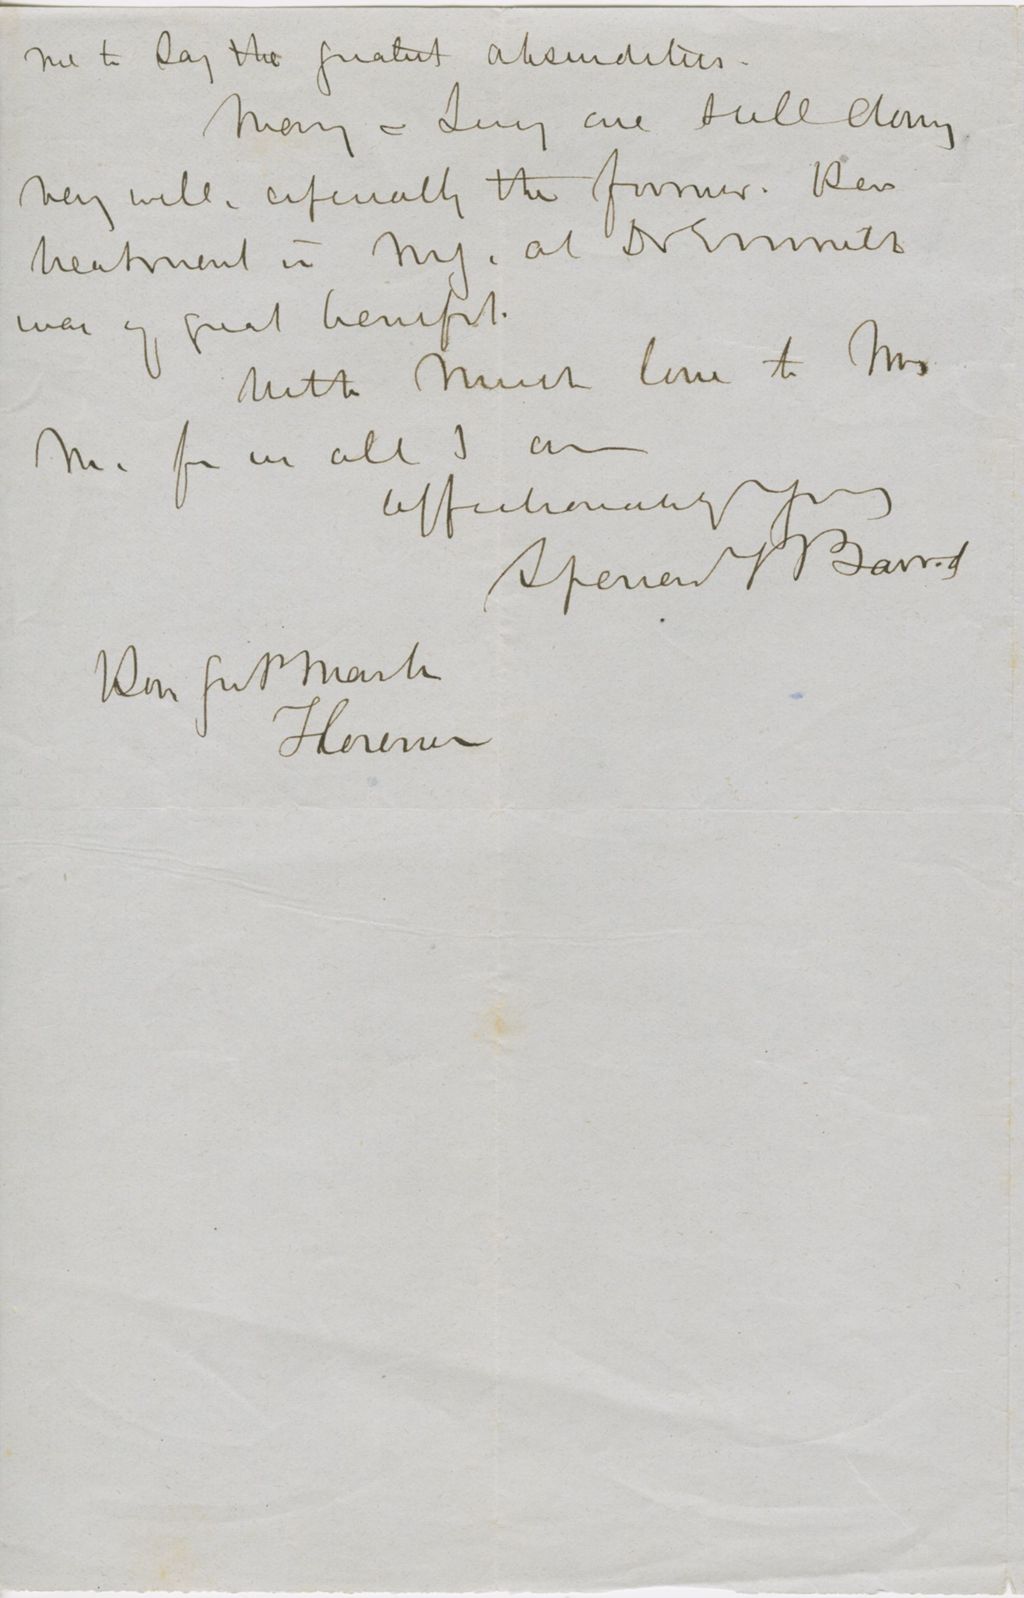 me to say the greatest absurdities.
Mary & Lucy are still doing
very well, especially the former. Her
treatment in N.Y. at Dr Emmets
was of great benefit.
With much love to Mrs
M. from us all I am
affectionately yours
Spencer F Baird
Hon Geo P Marsh
Florence